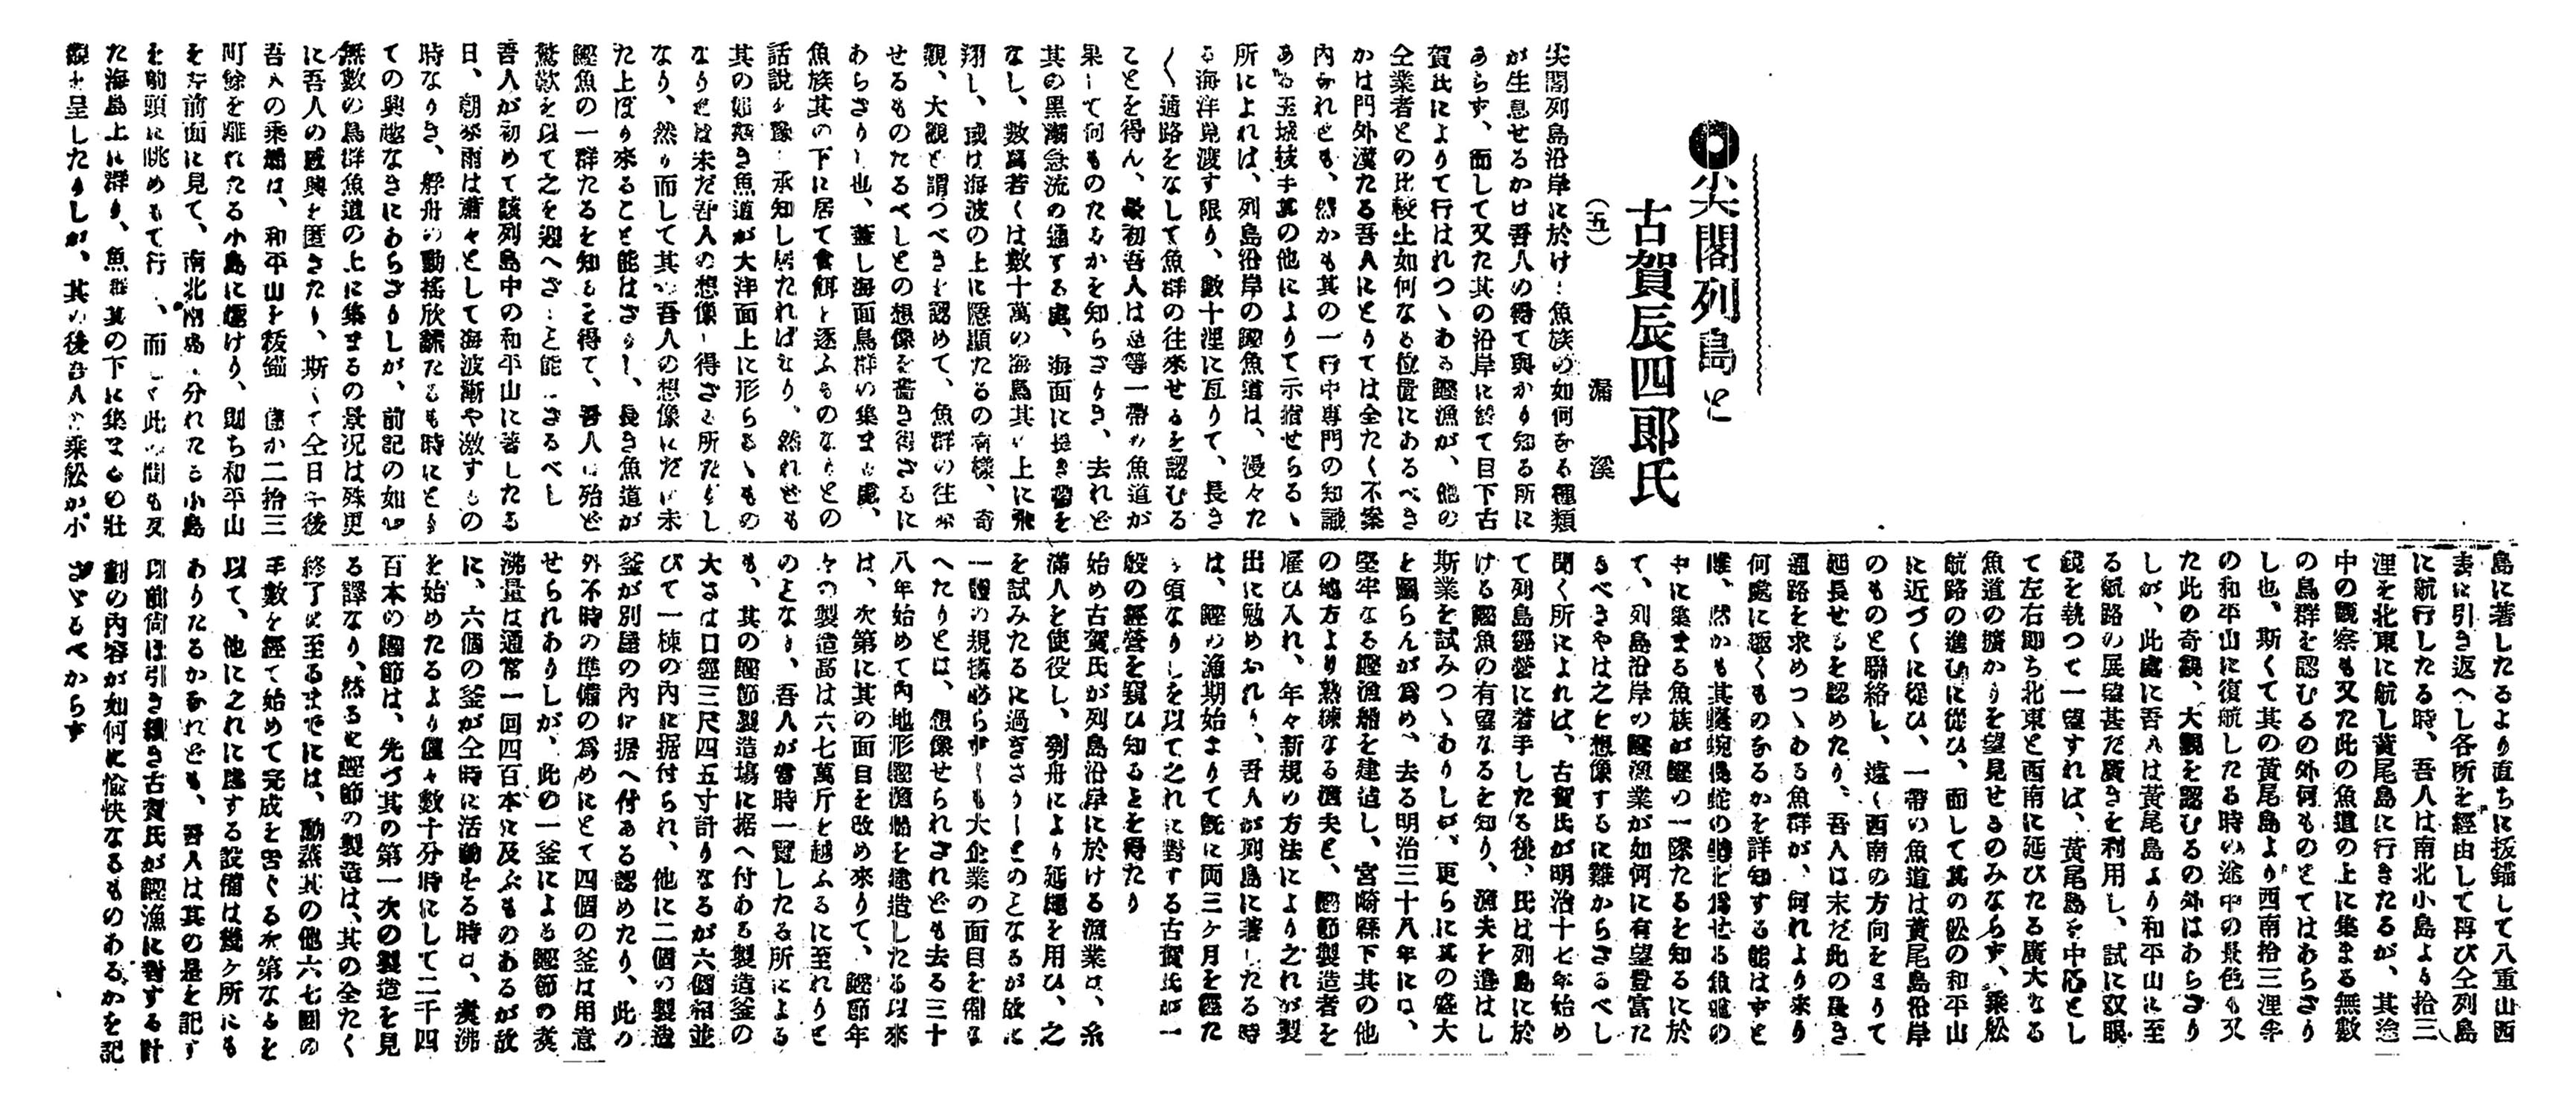 ●尖閣列島と
古賀辰四郎氏
(五)
漏溪
尖閣列島沿岸に於ける魚族の如何なる種類
が生息せるかは吾人の得て與かり知る所に
あらず、而して又た其の沿岸に於て目下古
賀氏によりて行はれつゝある鰹漁が、他の
仝業者との比較上如何なる位置にあるべき
かは門外漢たる吾人にとりては全たく不案
内なれども、然かも其の一行中専門の知識
ある玉城技手其の他によりて示指せらるゝ
所によれば、列島沿岸の鰹魚道は、漫々た
る海洋見渡す限り、數十浬に亙りて、長き
く通路をなして魚群の往來せるを認むる
ことを得ん、最初吾人は是等一帶の魚道が
果して何ものたるかを知らさりき、去れど
其の黑潮急流の通する處、海面に
なし、數萬若くは數十萬の海鳥其の上に飛
翔し、或は海波の上に隱顯たるの有樣、奇
觀、大觀と謂つべきを認めて、魚群の往來
せるものたるべしとの想像を き得ざるに
あらさりし也、蓋し海面鳥群の集まる處、
魚族其の下に居て食餌を逐ふものなりとの
話說を豫 承知し居たればなり、然れども
其の如き魚道が大洋面上に形らるゝもの
なりとは未だ吾人の想像し得ざる所たりし
なり、然り而して其 吾人の想像にだに未
た上ぼり來ること能はざりし、長き魚道が
鰹魚の一群たるを知るを得て、吾人は殆ど
驚歎を以て之を迎へざること能はさるべし
吾人が初めて該列島中の和平山に著したる
日、朝來雨は蕭々として海波漸や激すもの
時なりき、艀舟の動搖欣 たるも時にとり
ての興趣なきにあらざりしが、前記の如き
無數の鳥群魚道の上に集まるの景況は殊更
に吾人の感興を惹きたり、斯くて仝日午後
吾人の乘 は、和平山を拔錨 僅か二拾三
町餘を離れたる小島に向けり、即ち和平山
を 前面に見て、南北兩島 分れたる小島
を前頭に眺めもて行 、而して此の間も又
た海島上に群り、魚群其の下に集まるの壯
觀を呈したりしが、其の後吾人の乘船が小
島に著したるより直ちに拔錨して八重山西
表に引き返へし各所を經由して再び仝列島
に航行したる時、吾人は南北小島より拾三
浬を北東に航し黃尾島に行きたるが、其途
中の觀察も又た此の魚道の上に集まる無數
の鳥群を認むるの外何ものとてはあらざり
し也、斯くて其の黃尾島より西南拾三浬半
の和平山に復航したる時の途中の景色も又
た此の奇觀、大觀を認むるの外はあらさり
しが、此處に吾人は黃尾島より和平山に至
る航路の展望甚だ廣きを利用し、試に双眼
鏡を執つて一望すれば、黃尾島を中心とし
て左右即ち北東と西南に延びたる廣大なる
魚道の擴かりを望見せるのみならず、乘船
航路の進むに從ひ、而して其の船の和平山
に近づくに從ひ、一帶の魚道は黃尾島沿岸
のものと聯絡し、遠く西南の方向をさりて
延長せるを認めたり、吾人は末だ此の長き
通路を求めつゝある魚群が、何れより來り
何處に驅くものなるかを詳知する能はずと
雖、然かも其蜿蜒長蛇の 爲せる魚道の
中に集まる魚族が鰹の一隊たるを知るに於
て、列島沿岸の鰹漁業が如何に有望登富た
るべきやは之を想像するに難からさるべし
聞く所によれば、古賀氏が明治十七年始め
て列島經營に若手したる後、氏は列島に於
ける鰹魚の有望なるを知り、漁夫を遣はし
斯業を試みつゝありしが、更らに其の盛大
を圖らんが爲め、去る明治三十八年には、
堅牢なる鰹漁船を建造し、宮崎縣下其の他
の地方より熟練なる漁夫と、鰹節製造者を
雇ひ入れ、年々新規の方法により之れが製
出に勉めおれり、吾人が列島に著したる時
は、鰹の漁期始まりて旣に両三ヶ月を經た
る頃なりしを以て之れに對する古賀氏が一
般の經營を窺ひ知るとを得たり
始め古賀氏が列島沿岸に於ける漁業は、糸
滿人を使役し、刳舟により延繩を用ひ、之
を試みたるに過ぎさりしとのとなるが故に
一體の規模必らずしも大企業の面目を備な
へたりとは、想像せられされども去る三十
八年始めて内地形鰹漁船を建造したる以來
は、次第に其の面目を改め來りて、鰹節年
々の製造高は六七萬斤を越ふるに至れりと
のとなり、吾人が當時一覽したる所による
も、其の鰹節製造塲に据へ付ある製造釜の
大さは口徑三尺四五寸計りなるが六個相並
びて一棟の内に据付られ、他に二個の製造
釜が別屋の内に据へ付ある認めたり、此の
外不時の準備の爲めにとて四個の釜は用意
せられありしが、此の一釜によも鰹節の煑
沸量は通常一回四百本に及ぶものあるが故
に、六個の釜が仝時に活動をる時は、煑沸
を始めたるより僅々數十分時にして二千四
百本の鰹節は、先づ其の第一次の製造を見
る譯なり、然るに鰹節の製造は、其の全たく
終了に至るまでには、動蒸其の他六七囘の
手數を經て始めて完成を吿ぐる次第なるを
以て、他に之れに應する設備は幾ヶ所にも
ありたるかなれども、吾人は其の是を記す
以前尙は引き續き古賀氏が鰹漁に對する計
劃の内容が如何に愉快なるものあるかを記
さゞるべからす